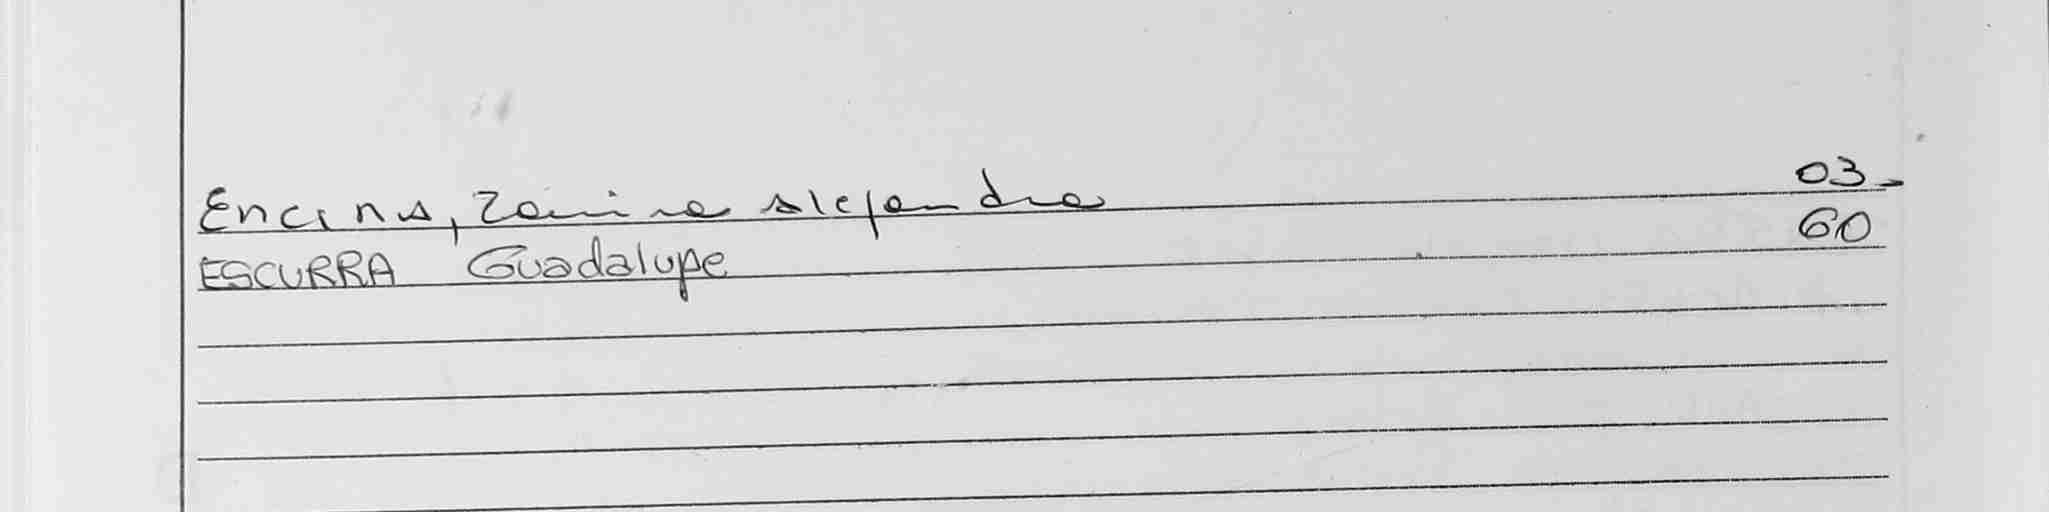 Encina, Romina Alejandra 03-
ESCURRA Guadalupe 60